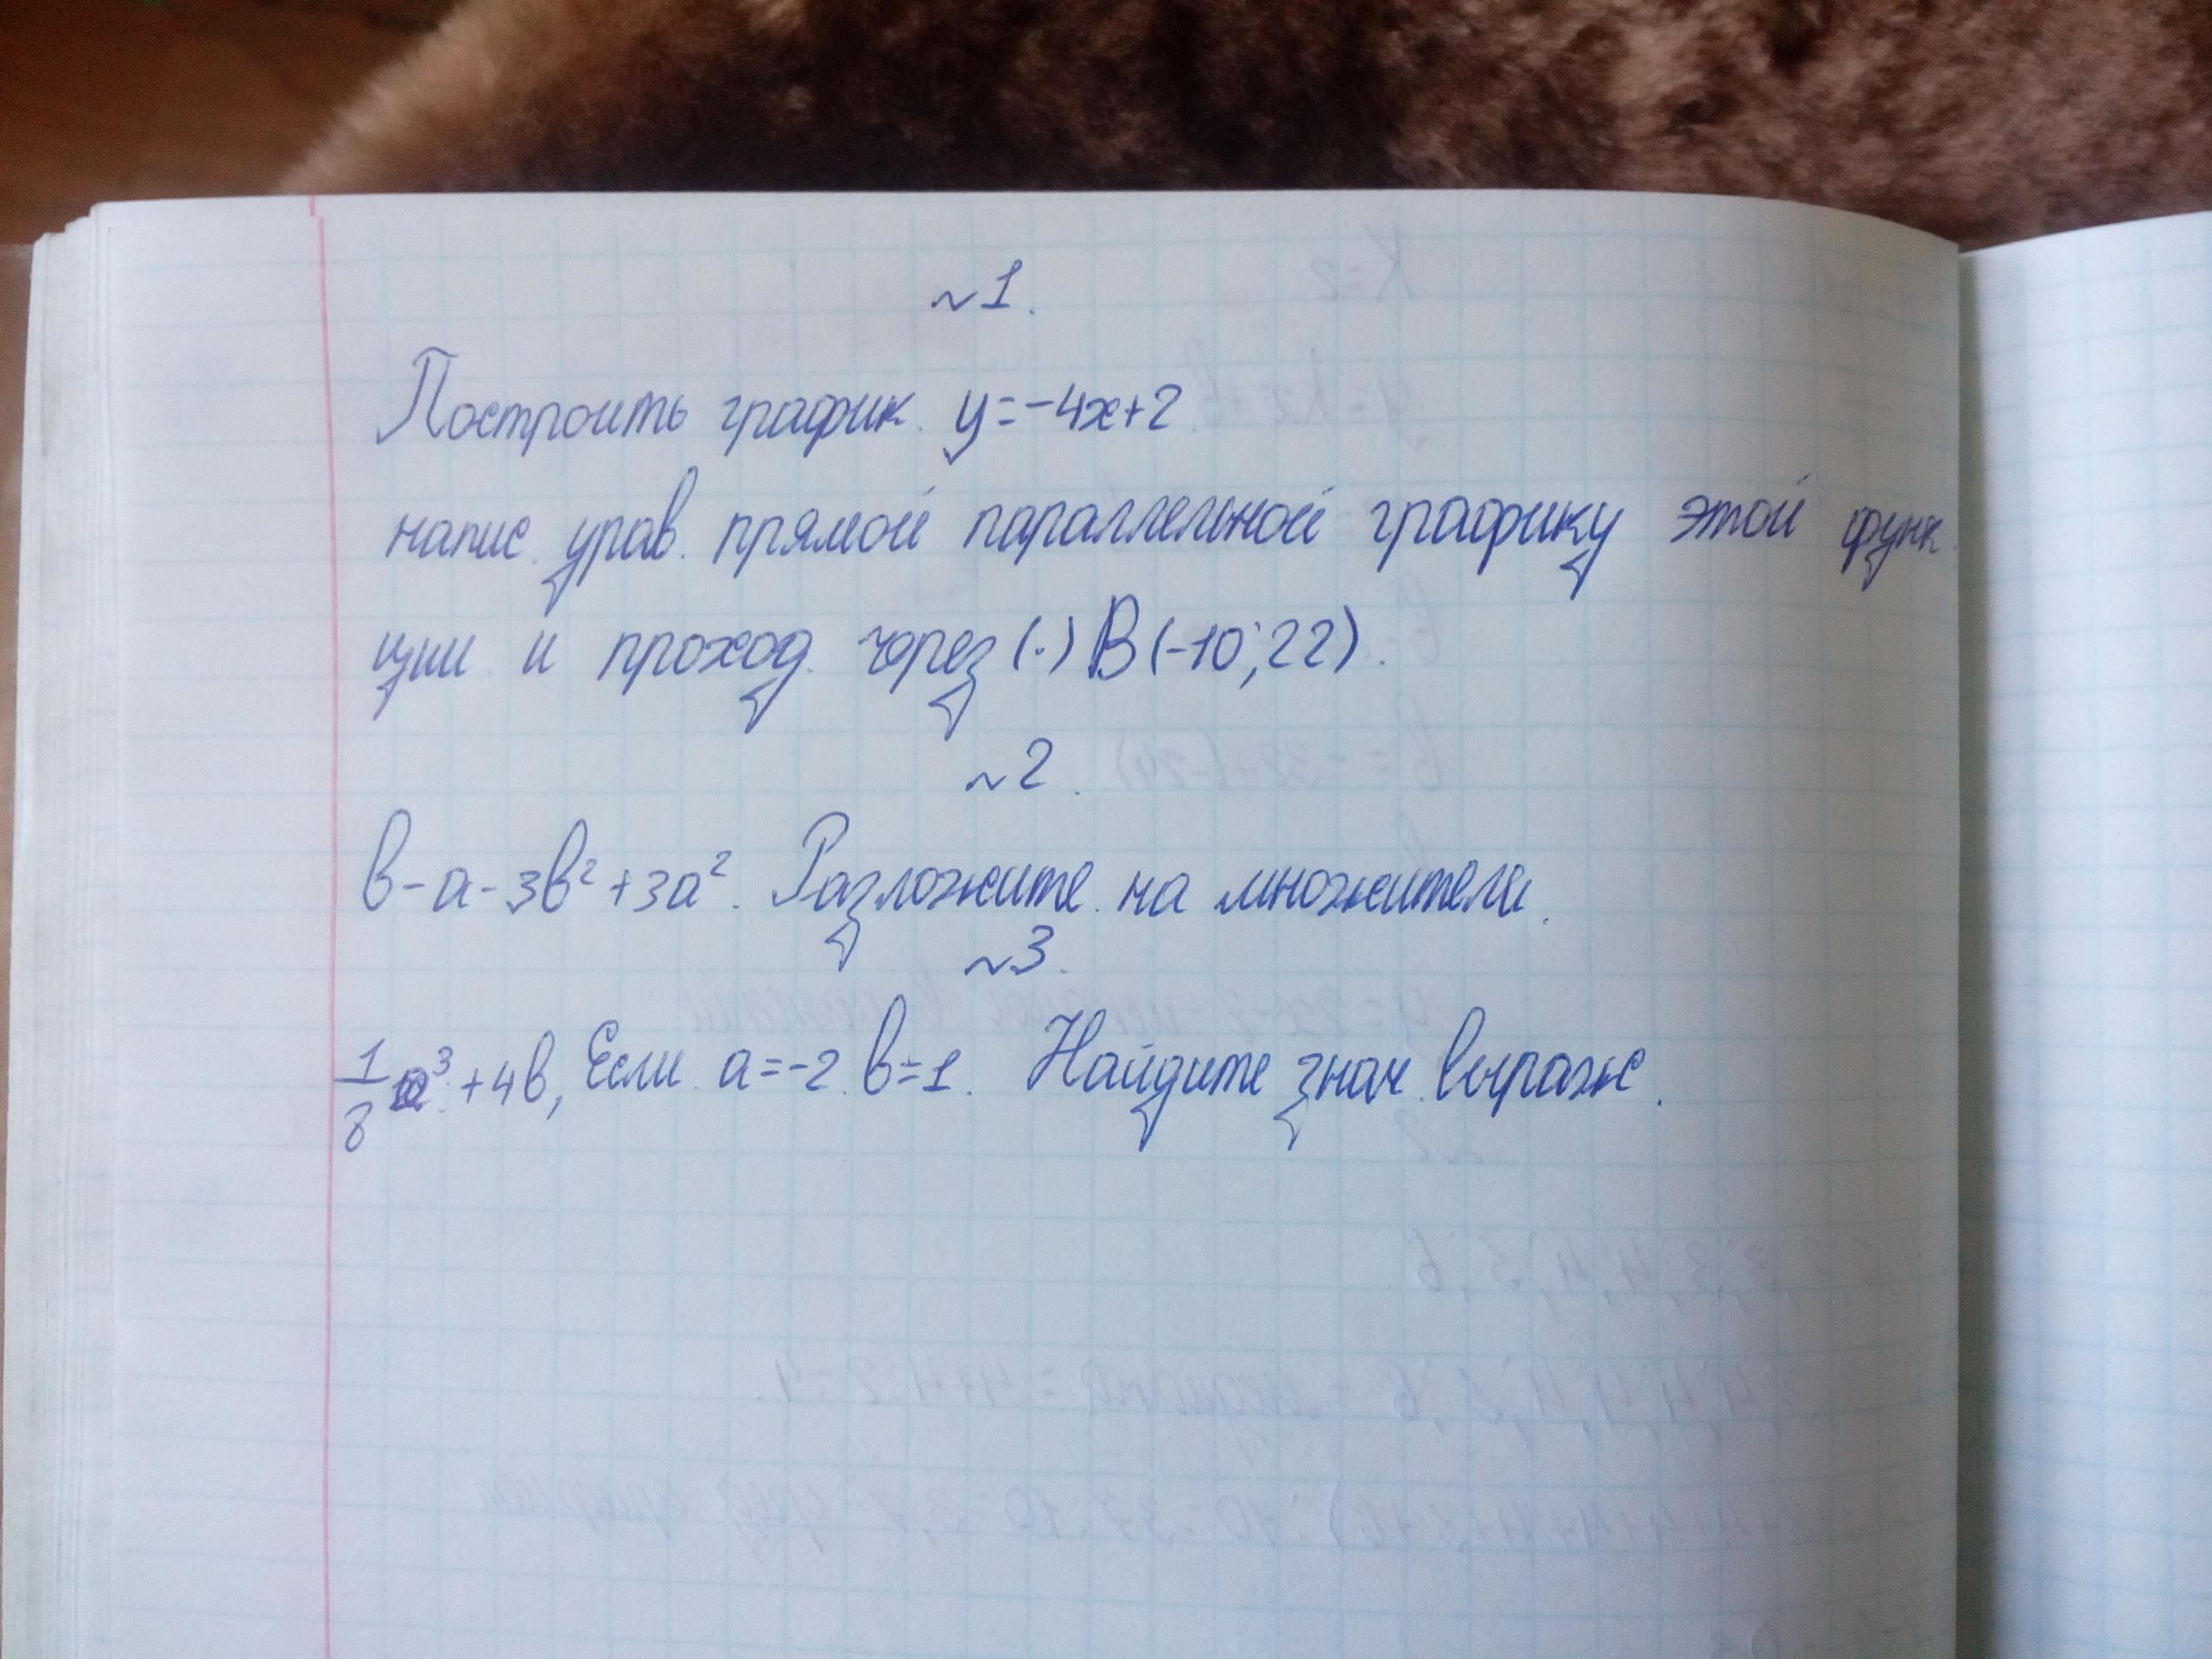 ~1.
Построить график. y=-4x+2
напис. урав. прямой параллельной графику этой функ
ции и проход. через (·) B (-10; 22).
~2.
в-а-3в²+3а². Разложите на множители.
~3.
1/8 а³+4в, Если а=-2 в=1. Найдите знач. выраж.